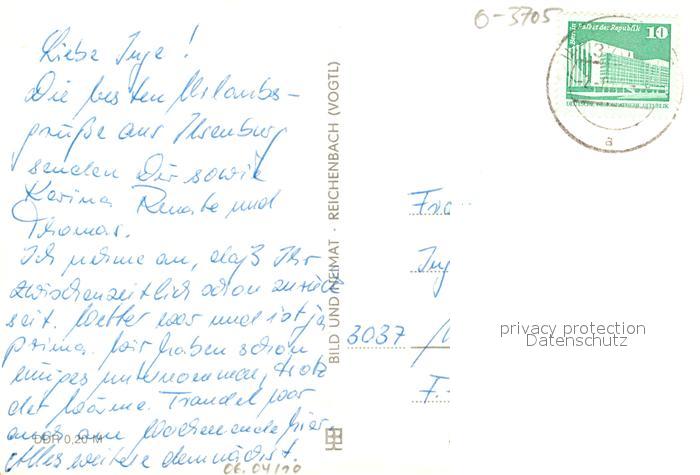 Liebe Inge!
Die besten Urlaubs-
grüße aus Ilsenburg
senden Dir sowie
Karina Renate und
Thomas.
Ich nehme an, daß Ihr
zwischenzeitlich schon zurück
seit. Wetter war und ist ja
prima. Wir haben schon
einiges unternommen, trotz
der Wärme. Traudel war
auch am Wochenende hier.
Alles weitere demnächst.
DDR 0,20 M
06.04/20
BILD UND HEIMAT · REICHENBACH (VOGTL)
0-3705
Berlin Palast der Republik
10
DEUTSCHE DEMOKRATISCHE REPUBLIK
a
Fra
Ing
3037
privacy protection
Datenschutz